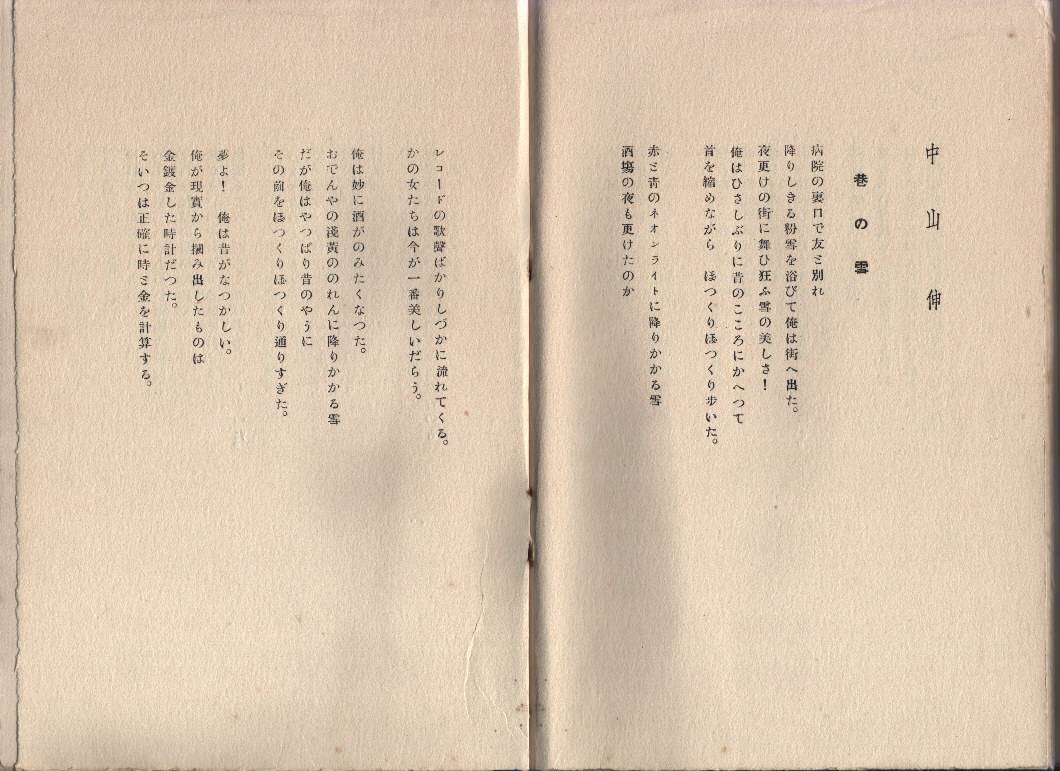 中山伸
巷の雪
病院の裏口で友と別れ
降りしきる粉雪を浴びて俺は街へ出た。
夜更けの街に舞ひ狂ふ雪の美しさ！
俺はひさしぶりに昔のこころにかへつて
首を縮めながら　ほつくりほつくり歩いた。
赤と青のネオンライトに降りかかる雪
酒場の夜も更けたのか
レコードの歌聲ばかりしづかに流れてくる。
かの女たちは今が一番美しいだらう。
俺は妙に酒がのみたくなつた。
おでんやの淺黄ののれんに降りかかる雪
だが俺はやつぱり昔のやうに
その前をほつくりほつくり通りすぎた。
夢よ！　俺は昔がなつかしい。
俺が現實から摑み出したものは
金鍍金した時計だつた。
そいつは正確に時と金を計算する。